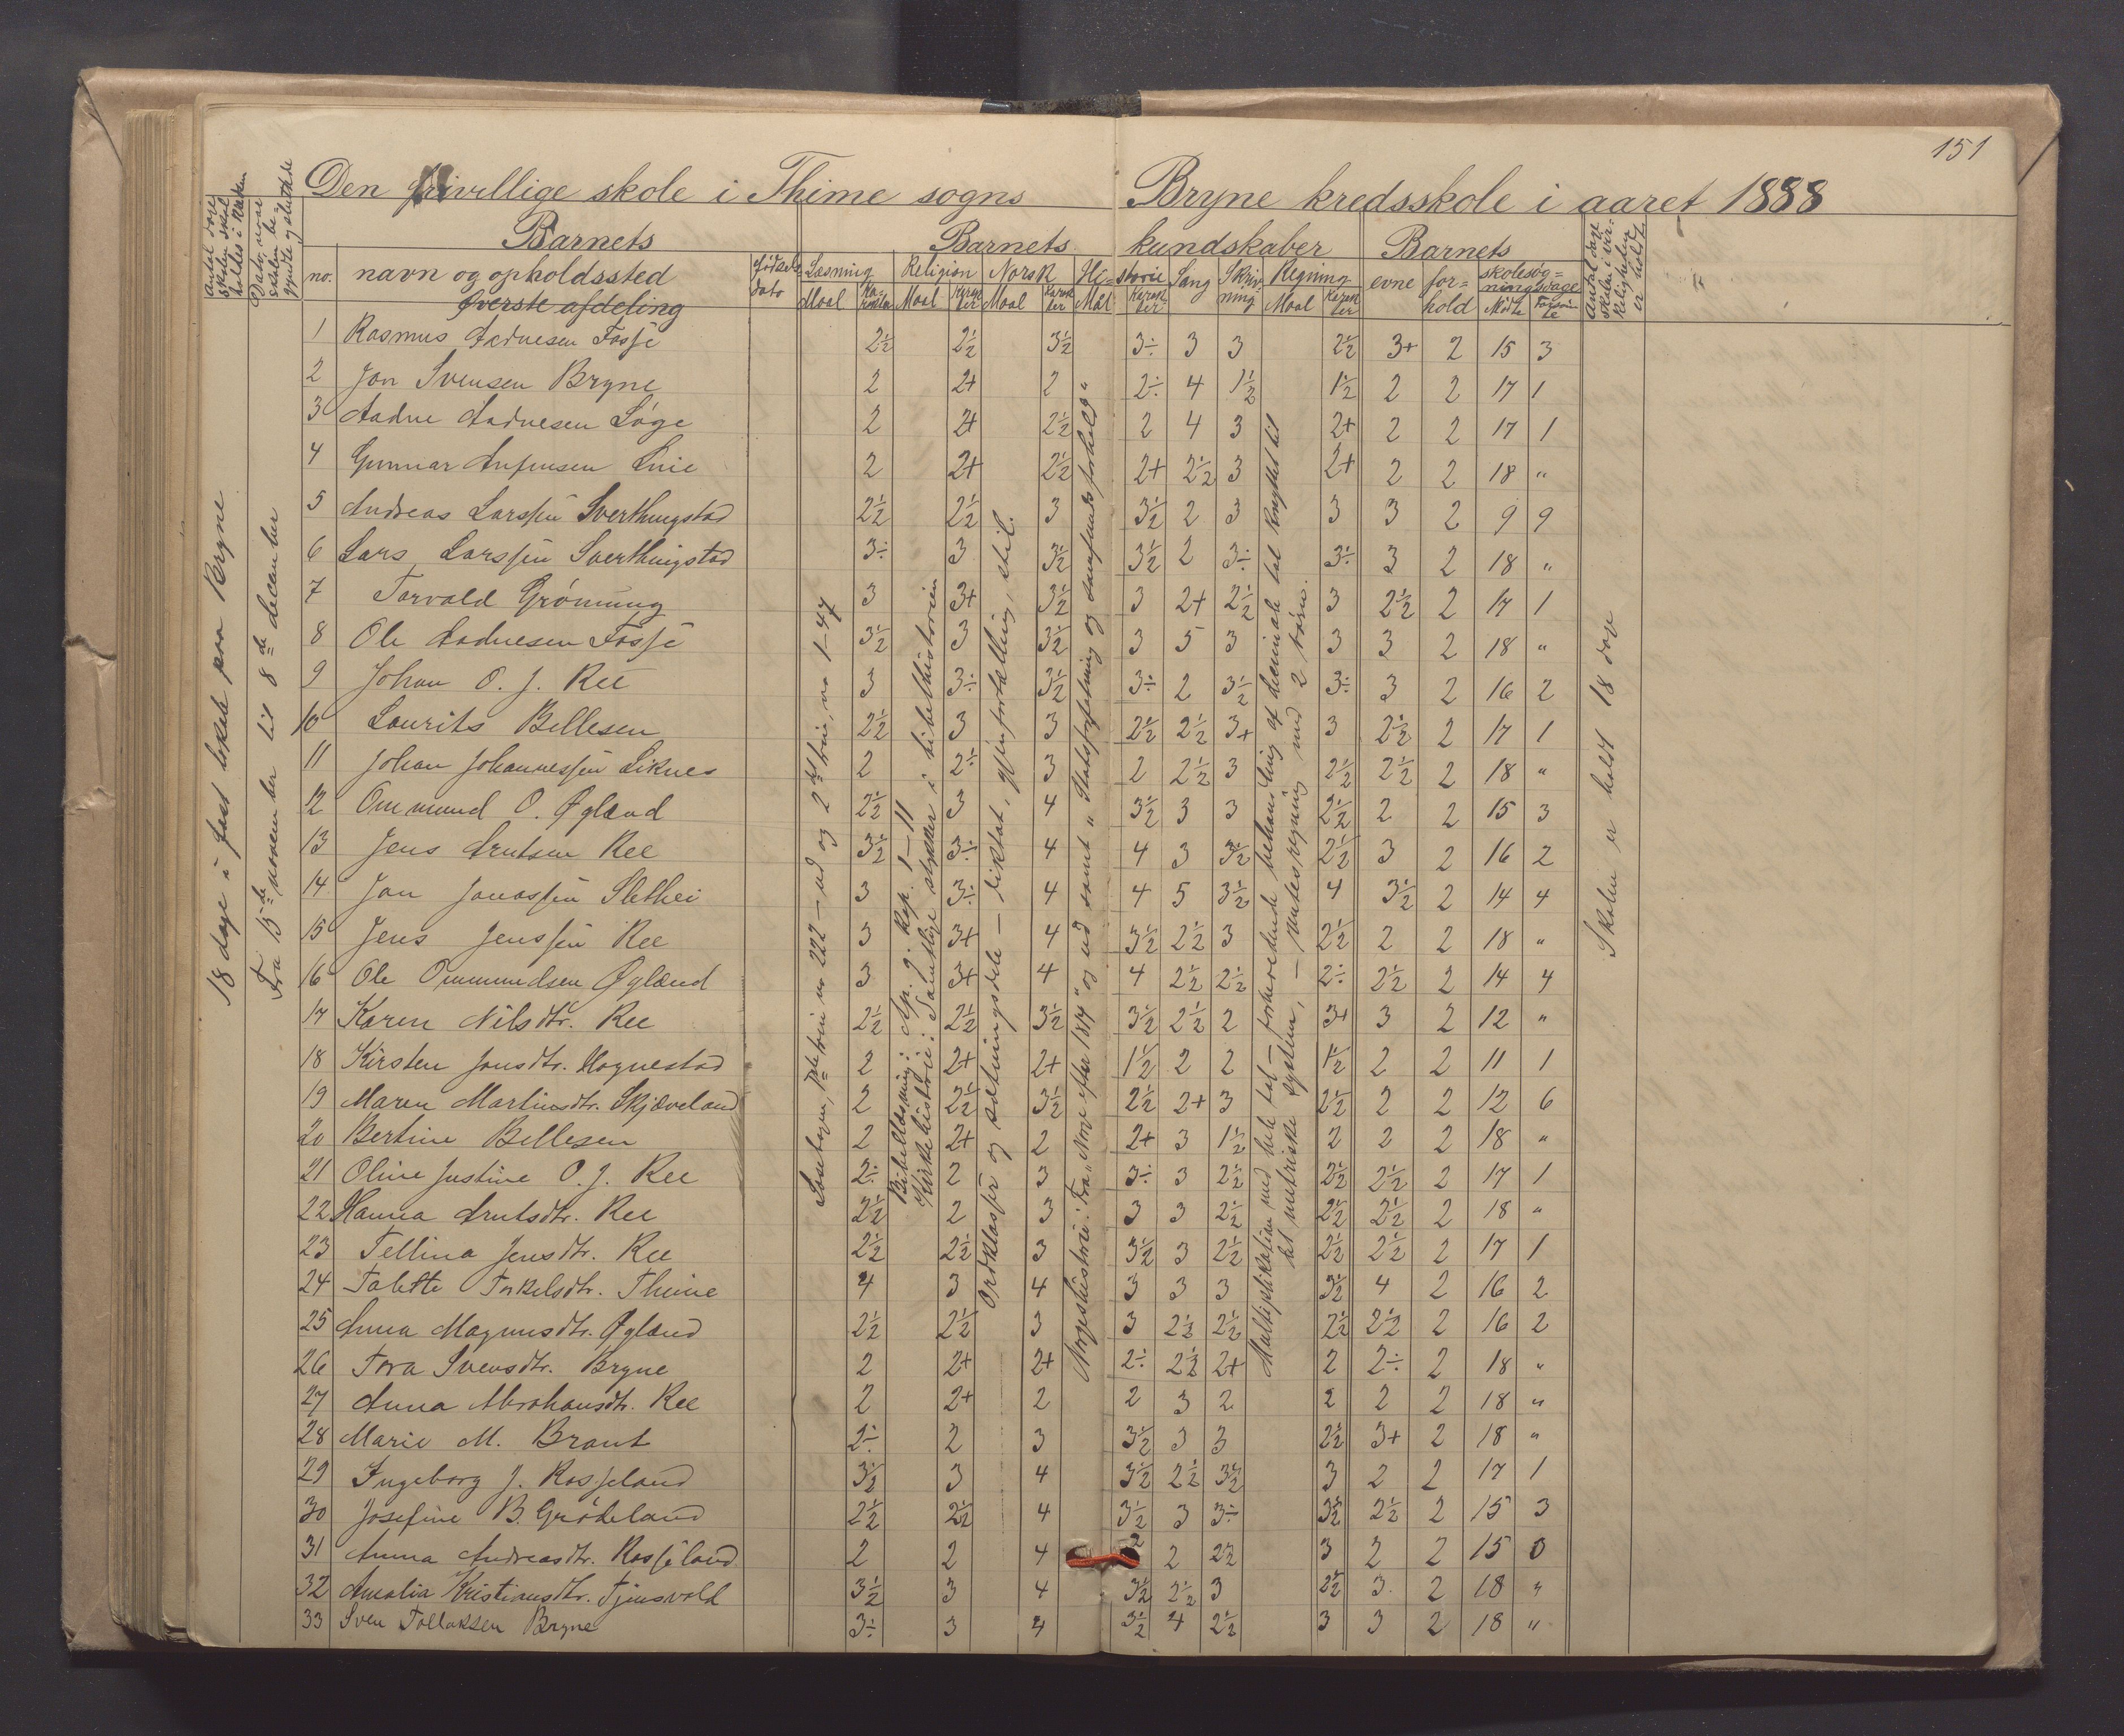 151
Den frivillige skole i Thime sogns Bryne kredsskole i aaret 1888
Antal dage skolen skal holdes i kredsen
Dato, naar skolen begyndte og sluttede
Barnets
Barnets kundskaber
Barnets
Antal dage skolen i virkeligheden er holdt
no. navn og opholdssted
Fødselsdato
Læsning Religion Norsk Historie Sang Skrivning Regning
evne forhold skolesøgningsdage
Maal Karakter Maal Karakter Maal Karakter Mål Karakter Maal Karakter Mødte Forsømte
Øverste afdeling
18 dage i fast lokale paa Bryne
Fra 15de november til 8de december
Læsebogen, 1ste trin no 222 – ud og 2det trin, no 1–47
Bibellæsning: Ap. g. kap. 1–11
Kirkehistorie: Samtlige stykker i bibelhistorien
Ordklasser og sætningsdele – diktat, gjenfortælling, stil.
Norgeshistorie: Fra "Norge efter 1814" og ud samt "Statsforfatning og samfundsforhold"
Multiplikation med hele tal – forberedende behandling af decimale tal knyttet til
det metriske system, – rentesregning med 2 trin.
Skolen er holdt 18 dage
1 Rasmus Aadnesen Fosse 2½ 2½ 3½ 3÷ 3 3 2½ 3+ 2 15 3
2 Jon Svensen Bryne 2 2+ 2 2÷ 4 1½ 1½ 2 2 17 1
3 Aadne Aadnesen Løge 2 2+ 2½ 2 4 3 2+ 2 2 17 1
4 Gunnar Line 2 2+ 2½ 2+ 2½ 3 2+ 2 2 18 "
5 Andreas Larssen Sverthingstad 2½ 2½ 3 3½ 2 3 3 3 2 9 9
6 Lars Larssen Sverthingstad 3÷ 3 3½ 3½ 2 3÷ 3÷ 3 2 18 "
7 Torvald Grønning 3 3+ 3½ 3 2+ 2½ 3 2½ 2 17 1
8 Ole Aadnesen Fosse 3½ 3 3½ 3 5 3 3 3 2 18 "
9 Johan O. J. Ree 3 3÷ 3½ 3÷ 2 3½ 3÷ 3 2 16 2
10 Laurits Bellesen 2½ 3 3 2½ 2½ 3+ 3 2½ 2 17 1
11 Johan Johannessen Liknes 2 2÷ 3 2 2½ 3 2½ 2½ 2 18 "
12 Ommund O. Øgland 2½ 3 4 3½ 3 3 2½ 2 2 15 3
13 Jens Arntsen Ree 3½ 3÷ 4 4 3 3½ 2½ 3 2 16 2
14 Jon Jonassen Slethei 3 3÷ 4 4 5 3½ 4 3½ 2 14 4
15 Jens Jenssen Ree 3 3+ 4 3½ 2½ 3 2½ 2 2 18 "
16 Ole Ommundsen Øgland 3 3+ 4 4 2½ 2½ 2÷ 2½ 2 14 4
17 Karen Nilsdtr. Ree 2½ 2½ 3½ 3½ 2½ 2 3+ 3 2 12 "
18 Kirsten Jonsdtr. Hognestad 2 2+ 2+ 1½ 2 2 1½ 2 2 11 1
19 Maren Martinsdtr. Skjæveland 2 2½ 3½ 2½ 2+ 3 2½ 2 2 12 6
20 Bertine Bellesen 2 2+ 2 2+ 3 1½ 2 2 2 18 "
21 Oline Justine O. J. Ree 2÷ 2 3 3÷ 3 2½ 2½ 2½ 2 17 1
22 Hanna Arntsdtr. Ree 2½ 2 3 3 3 2½ 2½ 2½ 2 18 "
23 Tellina Jensdtr. Ree 2½ 2½ 3 3½ 3 2½ 2½ 2½ 2 17 1
24 Talette Torkelsdtr. Thime 4 3 4 3 3 3 3½ 4 2 16 2
25 Anna Magnusdtr. Øgland 2½ 2½ 3 3 2½ 2½ 2½ 2½ 2 16 2
26 Tora Svensdtr. Bryne 2 2+ 2+ 2÷ 2½ 2+ 2 2÷ 2 18 "
27 Anna Abrahamsdtr. Ree 2 2+ 2 2 3 2 2 2 2 18 "
28 Marie M. Braut 2÷ 2 3 3½ 3 3 2½ 3+ 2 18 "
29 Ingeborg J. Rosseland 3½ 3 4 3½ 2½ 3½ 3 2 2 17 1
30 Josefine B. Grødeland 2½ 2½ 4 3½ 3 3÷ 3½ 2½ 2 15 3
31 Anna Andreasdtr. Rosseland 2 2 4 2 2 2½ 3 2 2 15 0
32 Amalia Kristiansdtr. Tjensvold 3½ 3 4 3½ 2½ 3 2½ 3 2 18 "
33 Sven Tollaksen Bryne 3÷ 3 4 3½ 4 2½ 3 3 2 18 "